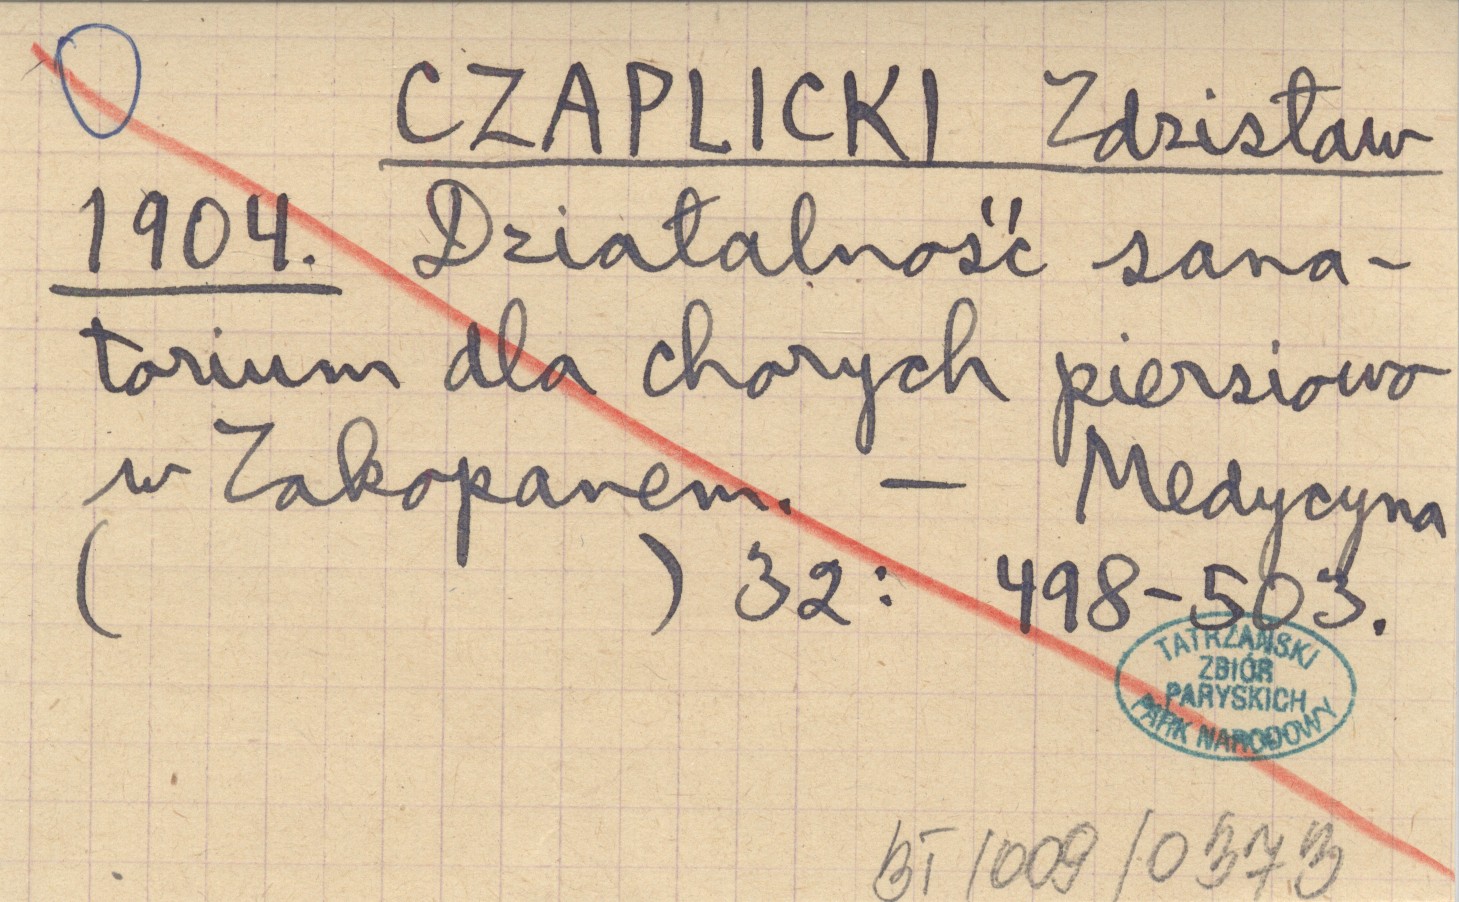 CZAPLICKI Zdzisław
1904. Działalność sana-
torium dla chorych piersiowo
w Zakopanem. — Medycyna
( ) 32: 498-503.
TATRZAŃSKI
ZBIÓR
PARYSKICH
PARK NARODOWY
BT/009/0373